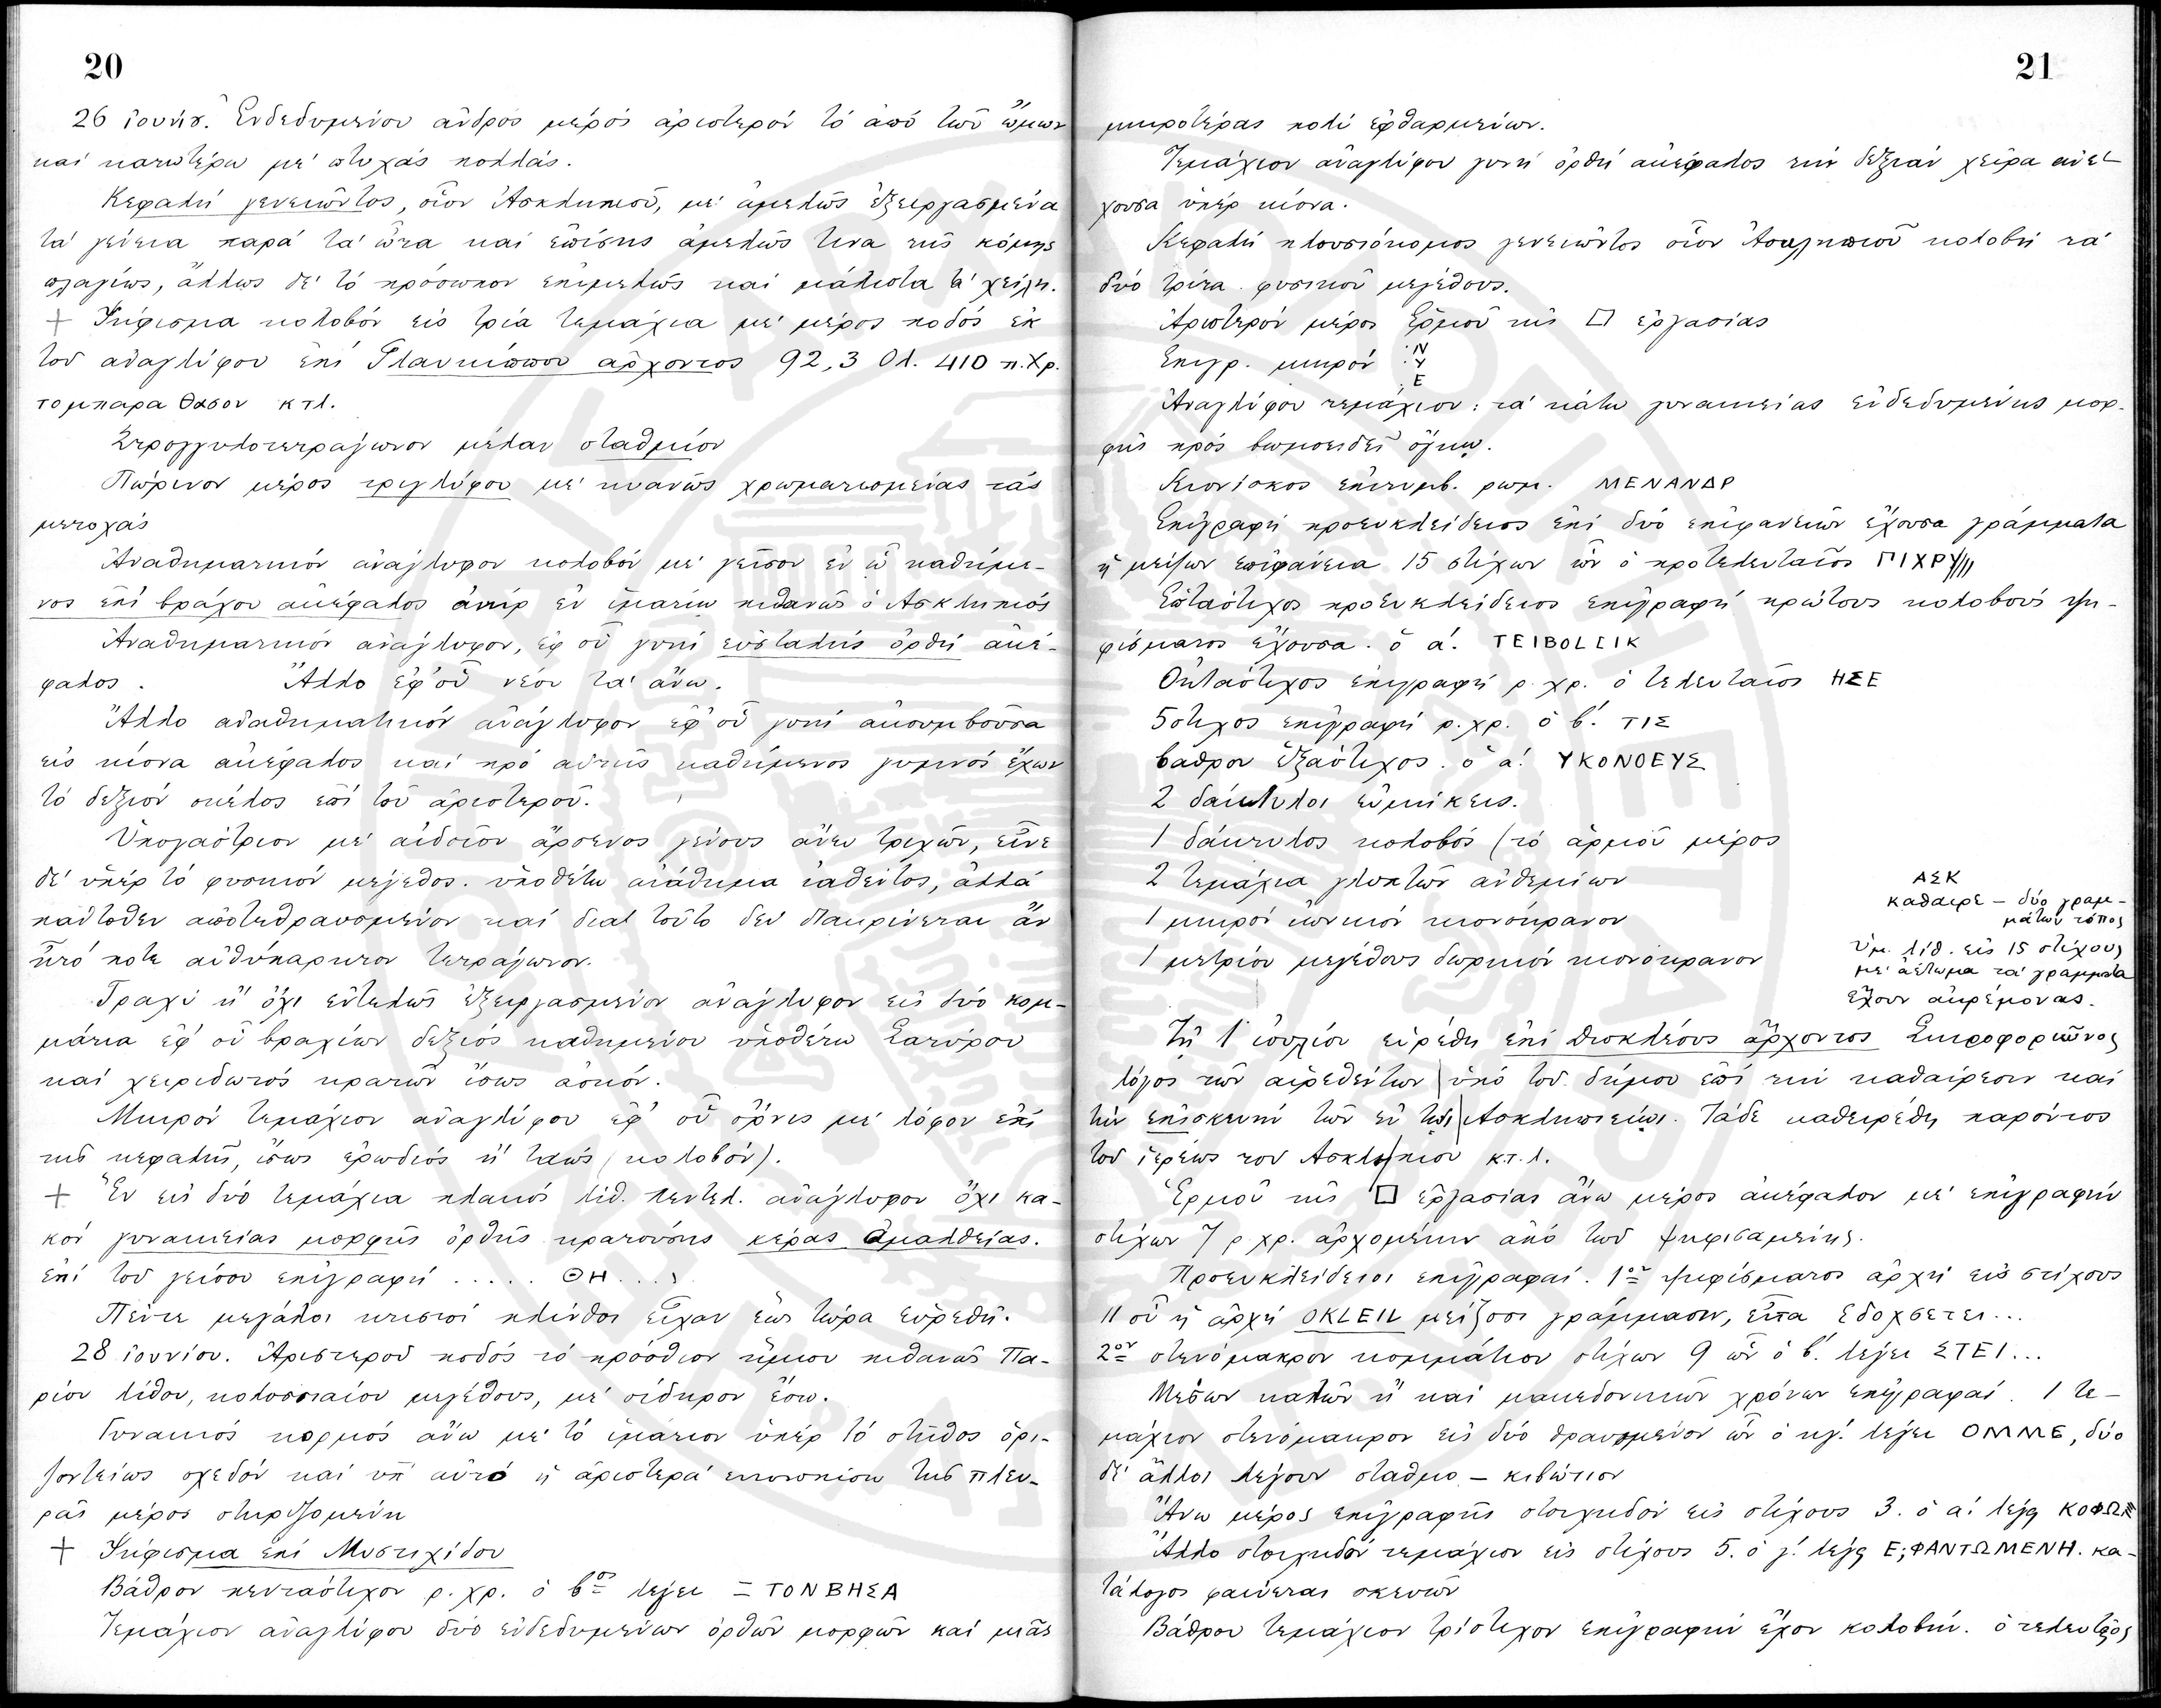 20
26 ἰουνίου. Ἐνδεδυμένου ἀνδρὸς μέρος ἀριστερὸν τὸ ἀπὸ τοῦ ὤμου
καὶ κατωτέρω μὲ πτυχὰς πολλάς.
Κεφαλὴ γενειῶντος, οἷον Ἀσκληπιοῦ, μὲ ἀμελῶς ἐξειργασμένα
τὰ γένεια παρὰ τὰ ὦτα καὶ ἐπίσης ἀμελῶς τινα τῆς κόμης
πλαγίως, ἄλλως δὲ τὸ πρόσωπον ἐπιμελῶς καὶ μάλιστα τὰ χείλη.
+ Ψήφισμα κολοβὸν εἰς τρία τεμάχια μὲ μέρος ποδὸς ἐκ
τοῦ ἀναγλύφου ἐπὶ Γλαυκίππου ἄρχοντος 92,3 Ολ. 410 π.Χρ.
τομπαρα Θασον κτλ.
Στρογγυλοτετράγωνον μέλαν σταθμίον
Πώρινον μέρος τριγλύφου μὲ κυανῶς χρωματισμένας τὰς
μετοχάς
Ἀναθηματικὸν ἀνάγλυφον κολοβὸν μὲ γεῖσον ἐν ᾧ καθήμε-
νος ἐπὶ βράχου ἀκέφαλος ἀνὴρ ἐν ἱματίῳ πιθανῶς ὁ Ἀσκληπιός
Ἀναθηματικὸν ἀνάγλυφον, ἐφ οὗ γυνὴ εὐσταλὴς ὀρθὴ ἀκέ-
φαλος. Ἄλλο ἐφ' οὗ νέου τὰ ἄνω.
Ἄλλο ἀναθηματικὸν ἀνάγλυφον ἐφ' οὗ γυνὴ ἀκουμβοῦσα
εἰς κίονα ἀκέφαλος καὶ πρὸ αὐτῆς καθήμενος γυμνὸς ἔχων
τὸ δεξιὸν σκέλος ἐπὶ τοῦ ἀριστεροῦ.
Ὑπογάστριον μὲ αἰδοῖον ἄρσενος γένους ἄνευ τριχῶν, εἶνε
δὲ ὑπὲρ τὸ φυσικὸν μέγεθος. ὑποθέτω ἀνάθημα ἰαθέντος, ἀλλὰ
πάντοθεν ἀποτεθραυσμένον καὶ διὰ τοῦτο δὲν διακρίνεται ἂν
ἦτό ποτε αὐθύπαρκτον τετράγωνον.
Τραχὺ ἢ ὄχι ἐντελῶς ἐξειργασμένον ἀνάγλυφον εἰς δύο κομ-
μάτια ἐφ' οὗ βραχίων δεξιὸς καθημένου ὑποθέτω Σατύρου
καὶ χειριδωτὸς κρατῶν ἴσως ἀσκόν.
Μικρὸν τεμάχιον ἀναγλύφου ἐφ' οὗ ὄρνις μὲ λόφον ἐπὶ
τῆς κεφαλῆς, ἴσως ἐρωδιὸς ἢ ταώς (κολοβόν).
+ Ἓν εἰς δύο τεμάχια πλακὸς λίθ. πεντελ. ἀνάγλυφον ὄχι κα-
κὸν γυναικείας μορφῆς ὀρθῆς κρατούσης κέρας Ἀμαλθείας.
ἐπὶ τοῦ γείσου ἐπιγραφὴ ..... ΘΗ...
Πέντε μεγάλοι κτιστοὶ πλίνθοι εἶχαν ἕως τώρα εὑρεθῆ.
28 ἰουνίου. Ἀριστεροῦ ποδὸς τὸ πρόσθιον ἥμισυ πιθανῶς Πα-
ρίου λίθου, κολοσσιαίου μεγέθους, μὲ σίδηρον ἔσω.
Γυναικὸς κορμὸς ἄνω μὲ τὸ ἱμάτιον ὑπὲρ τὸ στῆθος ὁρι-
ζοντείως σχεδὸν καὶ ὑπ' αὐτὸ ἡ ἀριστερὰ τῆς πλευ-
ρᾶς μέρος στηριζομένη
+ Ψήφισμα ἐπὶ Μυστιχίδου
Βάθρον πεντάστιχον ρ. χρ. ὁ βος λέγει = ΤΟΝΒΗΣΑ
Τεμάχιον ἀναγλύφου δύο ἐνδεδυμένων ὀρθῶν μορφῶν καὶ μιᾶς
21
μικροτέρας πολὺ ἐφθαρμένων.
Τεμάχιον ἀναγλύφου γυνὴ ὀρθὴ ἀκέφαλος τὴν δεξιὰν χεῖρα ἀνέ-
χουσα ὑπὲρ κίονα.
Κεφαλὴ πλουσιόκομος γενειῶντος οἷον Ἀσκληπιοῦ κολοβὴ τὰ
δύο τρίτα φυσικοῦ μεγέθους.
Ἀριστερὸν μέρος Ἑρμοῦ τῆς □ ἐργασίας
Ἐπιγρ. μικρὸν Ν
Υ
Ε
Ἀναγλύφου τεμάχιον: τὰ κάτω γυναικείας ἐνδεδυμένης μορ-
φῆς πρὸς βωμοειδεῖ ὄγκῳ.
Κιονίσκος ἐπιτυμβ. ρωμ. ΜΕΝΑΝΔΡ
Ἐπιγραφὴ προευκλείδειος ἐπὶ δύο ἐπιφανειῶν ἔχουσα γράμματα
ἡ μείζων ἐπιφάνεια 15 στίχων ὧν ὁ προτελευταῖος ΠΙΧΡΥ
Ἑπτάστιχος προευκλείδειος ἐπιγραφὴ πρώτους κολοβοὺς ψη-
φίσματος ἔχουσα. ὁ α! ΤΕΙΒΟLΣΙΚ
Ὀκτάστιχος ἐπιγραφὴ ρ. χρ. ὁ τελευταῖος ΗΣΕ
5στιχος ἐπιγραφὴ ρ. χρ. ὁ β! ΤΙΣ
βαθρον ἑξάστιχος. ὁ α! ΥΚΟΝΟΕΥΣ
2 δάκτυλοι εὐμήκεις.
1 δάκτυλος κολοβός (τὸ ἁρμοῦ μέρος
2 τεμάχια γλυπτῶν ἀνθεμίων
1 μικρὸν ἰωνικὸν κιονόκρανον
1 μετρίου μεγέθους δωρικὸν κιονόκρανον
ΑΣΚ
καθαιρε – δύο γραμ-
μάτων τόπος
Ὑμ. λίθ. εἰς 15 στίχους
μὲ ἀέτωμα τὰ γράμματα
ἔχουν ἀκρέμονας.
Τῇ 1 ἰουλίου εὑρέθη ἐπὶ Διοκλέους ἄρχοντος Σκιροφοριῶνος
λόγος τῶν αἱρεθέντων ὑπὸ τοῦ δήμου ἐπὶ τὴν καθαίρεσιν καὶ
τὴν ἐπισκευὴν τῶν ἐν τῶι Ἀσκληπιείωι. Τάδε καθειρέθη παρόντος
τοῦ ἱερέως του Ἀσκληπιου κ.τ.λ.
Ἑρμοῦ τῆς □ ἐργασίας ἄνω μέρος ἀκέφαλον μὲ ἐπιγραφὴν
στίχων 7 ρ. χρ. ἀρχομένην ἀπὸ τοῦ ψηφισαμένης.
Προευκλείδειοι ἐπιγραφαί. 1ον ψηφίσματος ἀρχὴ εἰς στίχους
11 οὗ ἡ ἀρχὴ ΟΚLΕΙL μείζοσι γράμμασιν, εἶτα Εδοχσετει...
2ον στενόμακρον κομμάτιον στίχων 9 ὧν ὁ β! λέγει ΣΤΕΙ...
Μέσων καλῶν ἢ καὶ μακεδονικῶν χρόνων ἐπιγραφαί. 1 τε-
μάχιον στενόμακρον εἰς δύο θραυσμένον ὧν ὁ κγ! λέγει ΟΜΜΕ, δύο
δὲ ἄλλοι λέγουν σταθμο – κιβώτιον
Ἄνω μέρος ἐπιγραφῆς στοιχηδὸν εἰς στίχους 3. ὁ α! λέγ ΚΟΦΩ
Ἄλλο στοιχηδὸν τεμάχιον εἰς στίχους 5. ὁ γ! λέγ Ε;ΦΑΝΤΩΜΕΝΗ. κα-
τάλογος φαίνεται σκευῶν
Βάθρου τεμάχιον τρίστιχον ἐπιγραφὴν ἔχον κολοβήν. ὁ τελευταῖος